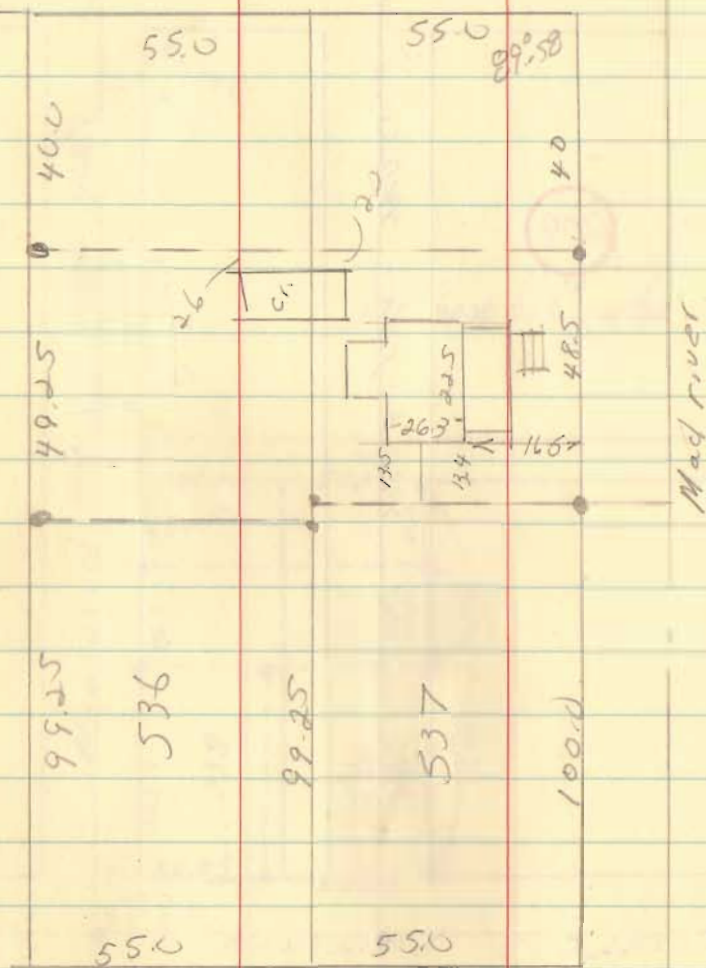 55.0
55.0
89°58
40.0
40
26
Gr.
49.25
22.5
48.5
26.3
16.5
13.5
13.4
Mad river
99.25
536
99.25
537
100.0
55.0
55.0